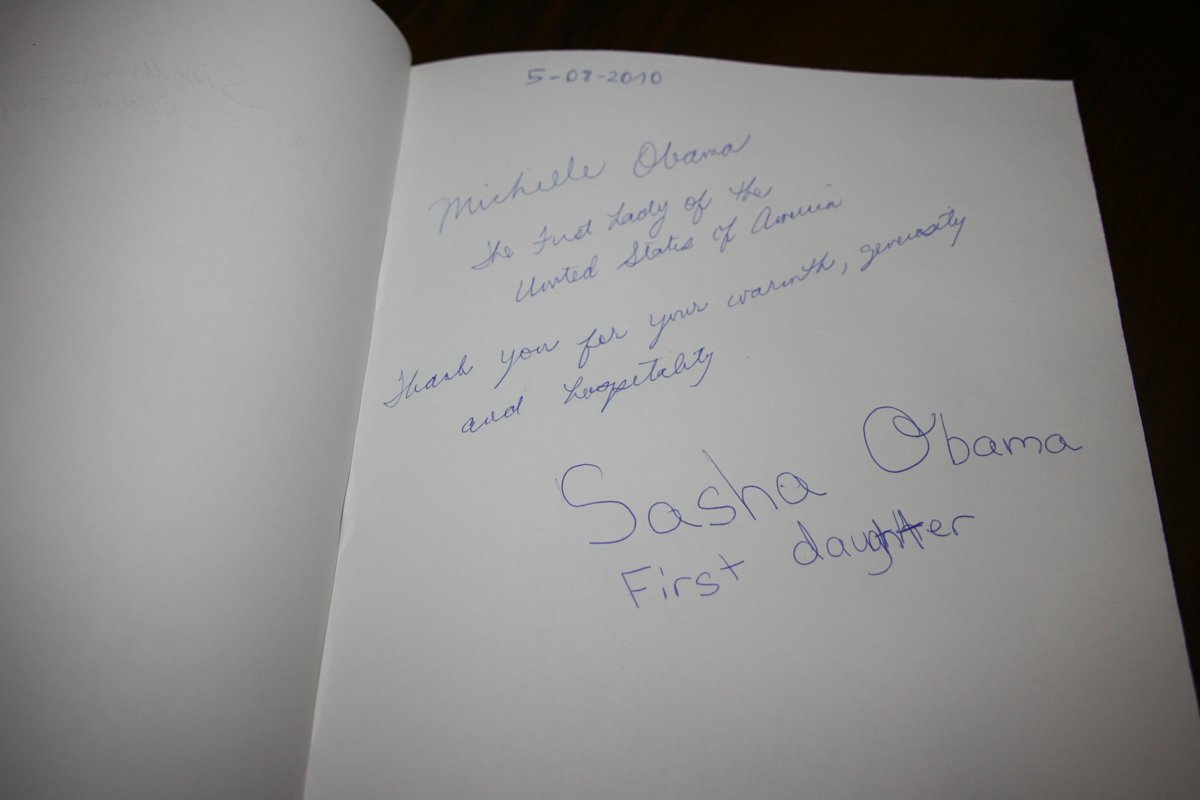 5-08-2010
Michelle Obama
The First Lady of the
United States of America
Thank you for your warmth, generosity
and hospitality
Sasha Obama
First daughter